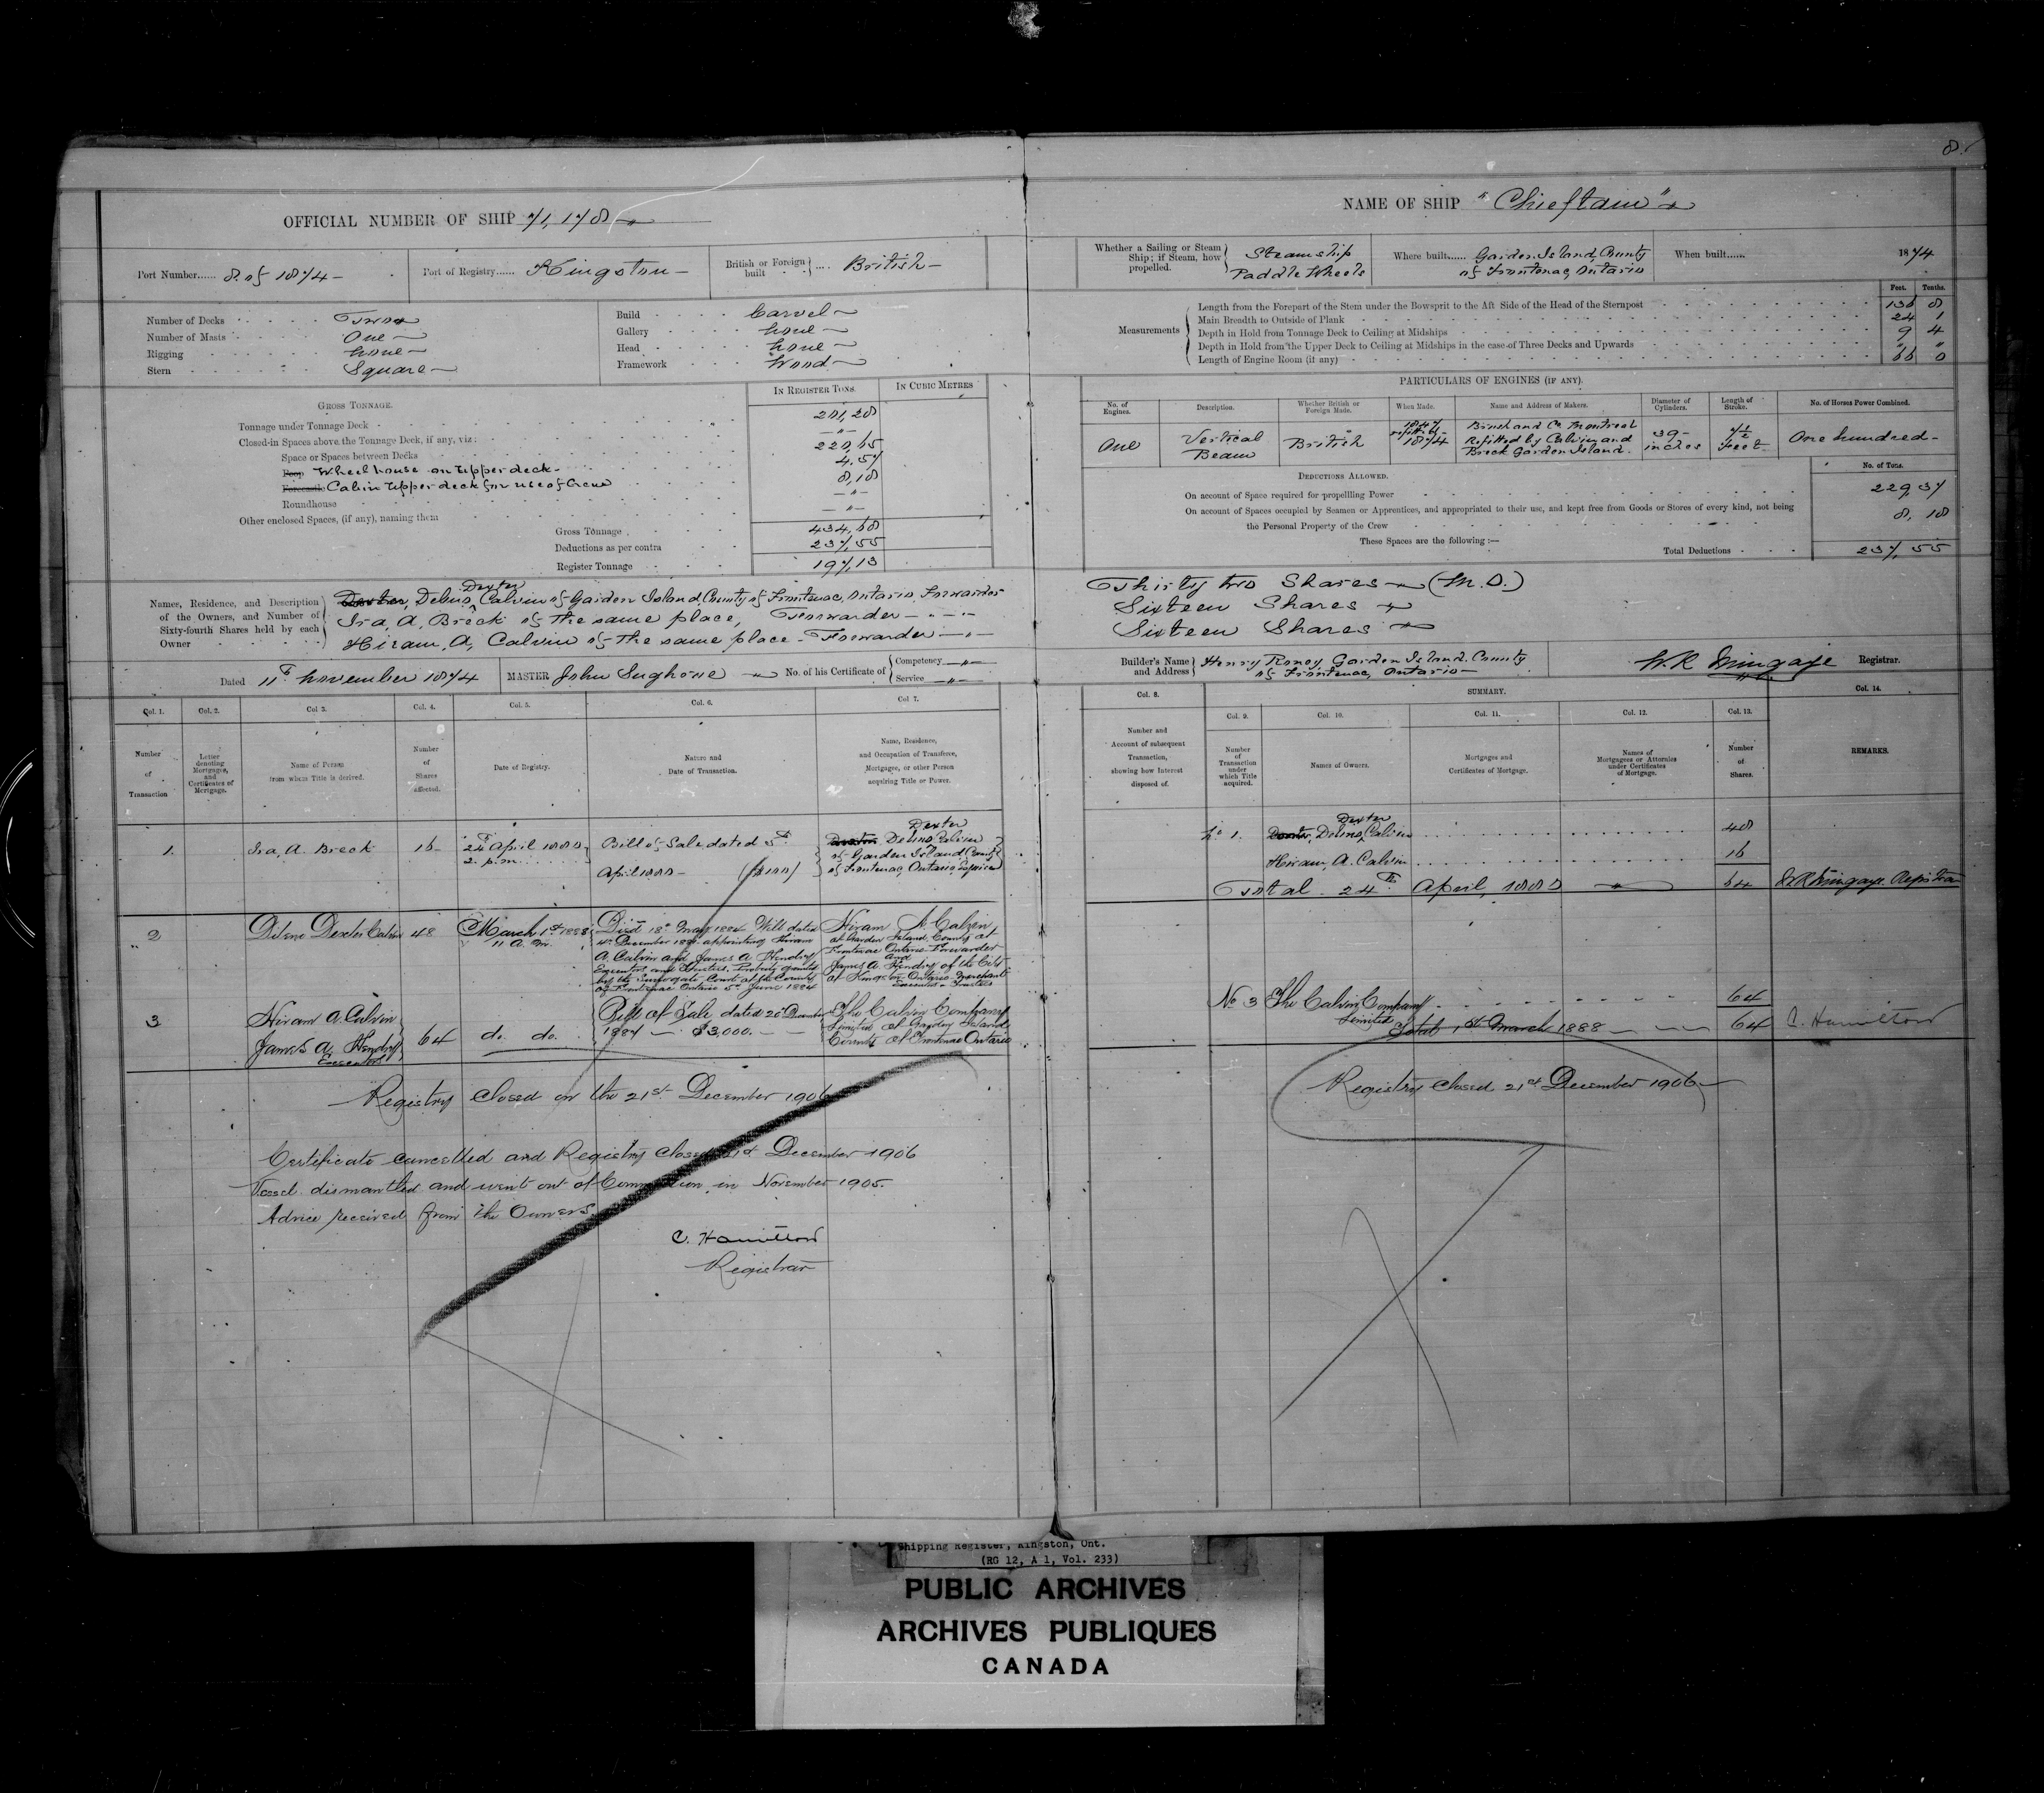 8.
OFFICIAL NUMBER OF SHIP 71,178
Port Number...... 8 of 1874 —
Port of Registry...... Kingston —
British or Foreign built .... British —
Number of Decks Two
Number of Masts One
Rigging none
Stern Square
Build Carvel
Gallery none
Head none
Framework Wood
GROSS TONNAGE.
IN REGISTER TONS. IN CUBIC METRES
Tonnage under Tonnage Deck 201,28
Closed-in Spaces above the Tonnage Deck, if any, viz: — " —
Space or Spaces between Decks 220,65
Poop Wheelhouse on Upper deck 4,57
Forecastle Cabin Upper deck for use of Crew 8,18
Roundhouse — " —
Other enclosed Spaces, (if any), naming them — " —
Gross Tonnage 434,68
Deductions as per contra 237,55
Register Tonnage 197,13
Names, Residence, and Description of the Owners, and Number of Sixty-fourth Shares held by each Owner
Dexter, Delino Dexter Calvin of Garden Island, County of Frontenac, Ontario Forwarder
Ira, A, Breck of the same place, Forwarder — " —
Hiram, A, Calvin of the same place - Forwarder — " —
Dated 11th November 1874 MASTER John Sughrue No. of his Certificate of Competency — " — Service — " —
Col. 1. Col. 2. Col 3. Col. 4. Col. 5. Col. 6. Col 7.
Number of Transaction
Letter denoting Mortgages, and Certificates of Mortgage.
Name of Person from whom Title is derived.
Number of Shares affected.
Date of Registry.
Nature and Date of Transaction.
Name, Residence, and Occupation of Transferee, Mortgagee, or other Person acquiring Title or Power.
1. Ira, A. Breck 16 24th April 1880 2. p.m. Bill of Sale dated 5th April 1880 — Dexter, Delino Dexter Calvin of Garden Island County of Frontenac, Ontario Esquire
2 Delino Dexter Calvin 48 March 1st 1888 11 A.M. Died 18th May 1884 Will dated
4th December 1880 appointing Hiram
A. Calvin and James A Hendry
Executors and Trustees. Probate granted
by the Surrogate Court of the County
of Frontenac Ontario 5th June 1884
Hiram A. Calvin
of Garden Island, County of
Frontenac Ontario Forwarder
and
James A. Hendry of the City
of Kingston Ontario Merchant
Executors & Trustees
3 Hiram A. Calvin
James A Hendry
Executors
64 do. do. Bill of Sale dated 20 December
1887 — $3,000. —
The Calvin Company
Limited of Garden Island
County of Frontenac Ontario
Registry Closed on the 21st December 1906
Certificate cancelled and Registry closed 21st December 1906
Vessel dismantled and went out of Commission in November 1905.
Advice received from the Owners.
C. Hamilton
Registrar
NAME OF SHIP "Chieftain"
Whether a Sailing or Steam Ship; if Steam, how propelled. Steamship Paddle Wheels
Where built...... Garden Island, County of Frontenac, Ontario
When built...... 1874
Feet. Tenths.
Measurements
Length from the Forepart of the Stem under the Bowsprit to the Aft Side of the Head of the Sternpost 136 8
Main Breadth to Outside of Plank 24 1
Depth in Hold from Tonnage Deck to Ceiling at Midships 9 4
Depth in Hold from the Upper Deck to Ceiling at Midships in the case of Three Decks and Upwards " "
Length of Engine Room (if any) 66 0
PARTICULARS OF ENGINES (IF ANY).
No. of Engines. Description. Whether British or Foreign Made. When Made. Name and Address of Makers. Diameter of Cylinders. Length of Stroke. No. of Horses Power Combined.
One Vertical Beam British 1847 refitted 1874 Brush and Co Montreal Refitted by Calvin and Breck Garden Island. 39 - inches 7½ Feet One hundred -
DEDUCTIONS ALLOWED. No. of Tons.
On account of Space required for propelling Power 229,37
On account of Spaces occupied by Seamen or Apprentices, and appropriated to their use, and kept free from Goods or Stores of every kind, not being
the Personal Property of the Crew 8,18
These Spaces are the following :—
Total Deductions 237,55
Thirty two Shares (M.O.)
Sixteen Shares
Sixteen Shares
Builder's Name and Address Henry Roney, Garden Island, County of Frontenac, Ontario
W. R Mingaye Registrar.
Col. 8. SUMMARY. Col. 14.
Col. 9. Col. 10. Col. 11. Col. 12. Col. 13.
Number and Account of subsequent Transaction, showing how Interest disposed of.
Number of Transaction under which Title acquired.
Names of Owners.
Mortgages and Certificates of Mortgage.
Names of Mortgagees or Attornies under Certificates of Mortgage.
Number of Shares.
REMARKS.
No 1. Dexter, Delino Dexter Calvin 48
Hiram, A. Calvin 16
Total 24th April, 1880 64 W R Mingaye Registrar
No 3 The Calvin Company Limited 64
Total 1st March 1888 64 C. Hamilton
Registry Closed 21st December 1906
Shipping Register, Kingston, Ont.
(RG 12, A 1, Vol. 233)
PUBLIC ARCHIVES
ARCHIVES PUBLIQUES
CANADA